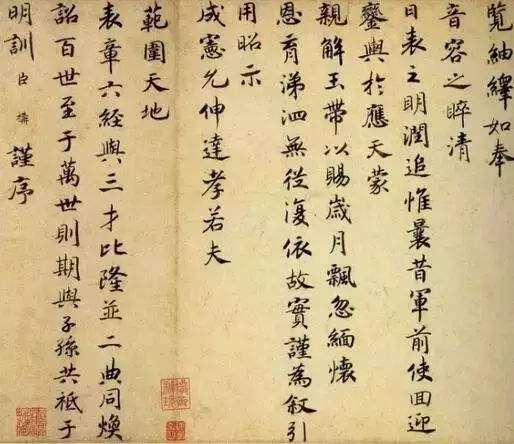 覽紬繹如奉
音容之晬清
日表之明潤追惟曩昔軍前使回迎
鑾輿於應天蒙
親解玉帶以賜歲月飄忽緬懷
恩育涕泗無從復依故實謹為叙引
用昭示
成憲允伸達孝若夫
範圍天地
表章六經與三才比隆並二典同煥
詔百世至于萬世則期與子孫共祗于
明訓臣構謹序